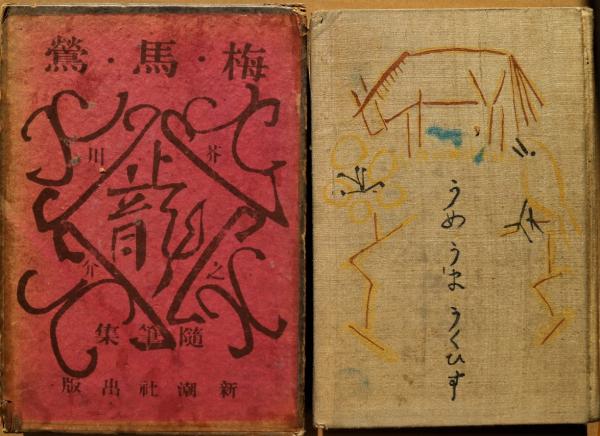 梅・馬・鶯
芥川龍之介
隨筆集
新潮社出版
うめ うま うくひす